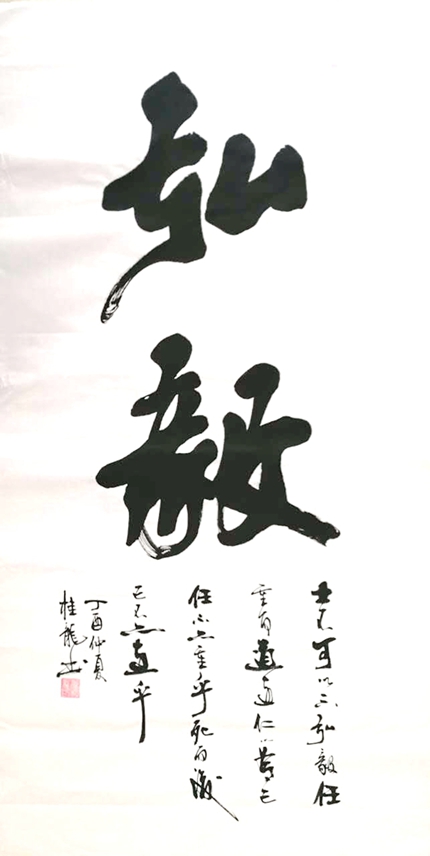 弘毅
士不可以不弘毅任
重而道遠仁以為己
任不亦重乎死而後
已不亦遠乎
丁酉仲夏
桂龍书